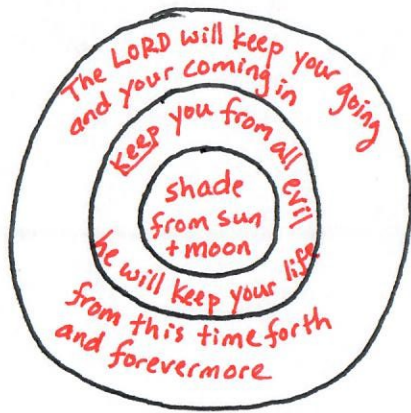 The LORD will keep your going
and your coming in
keep you from all evil
shade
from sun
+ moon
he will keep your life
from this time forth
and forevermore